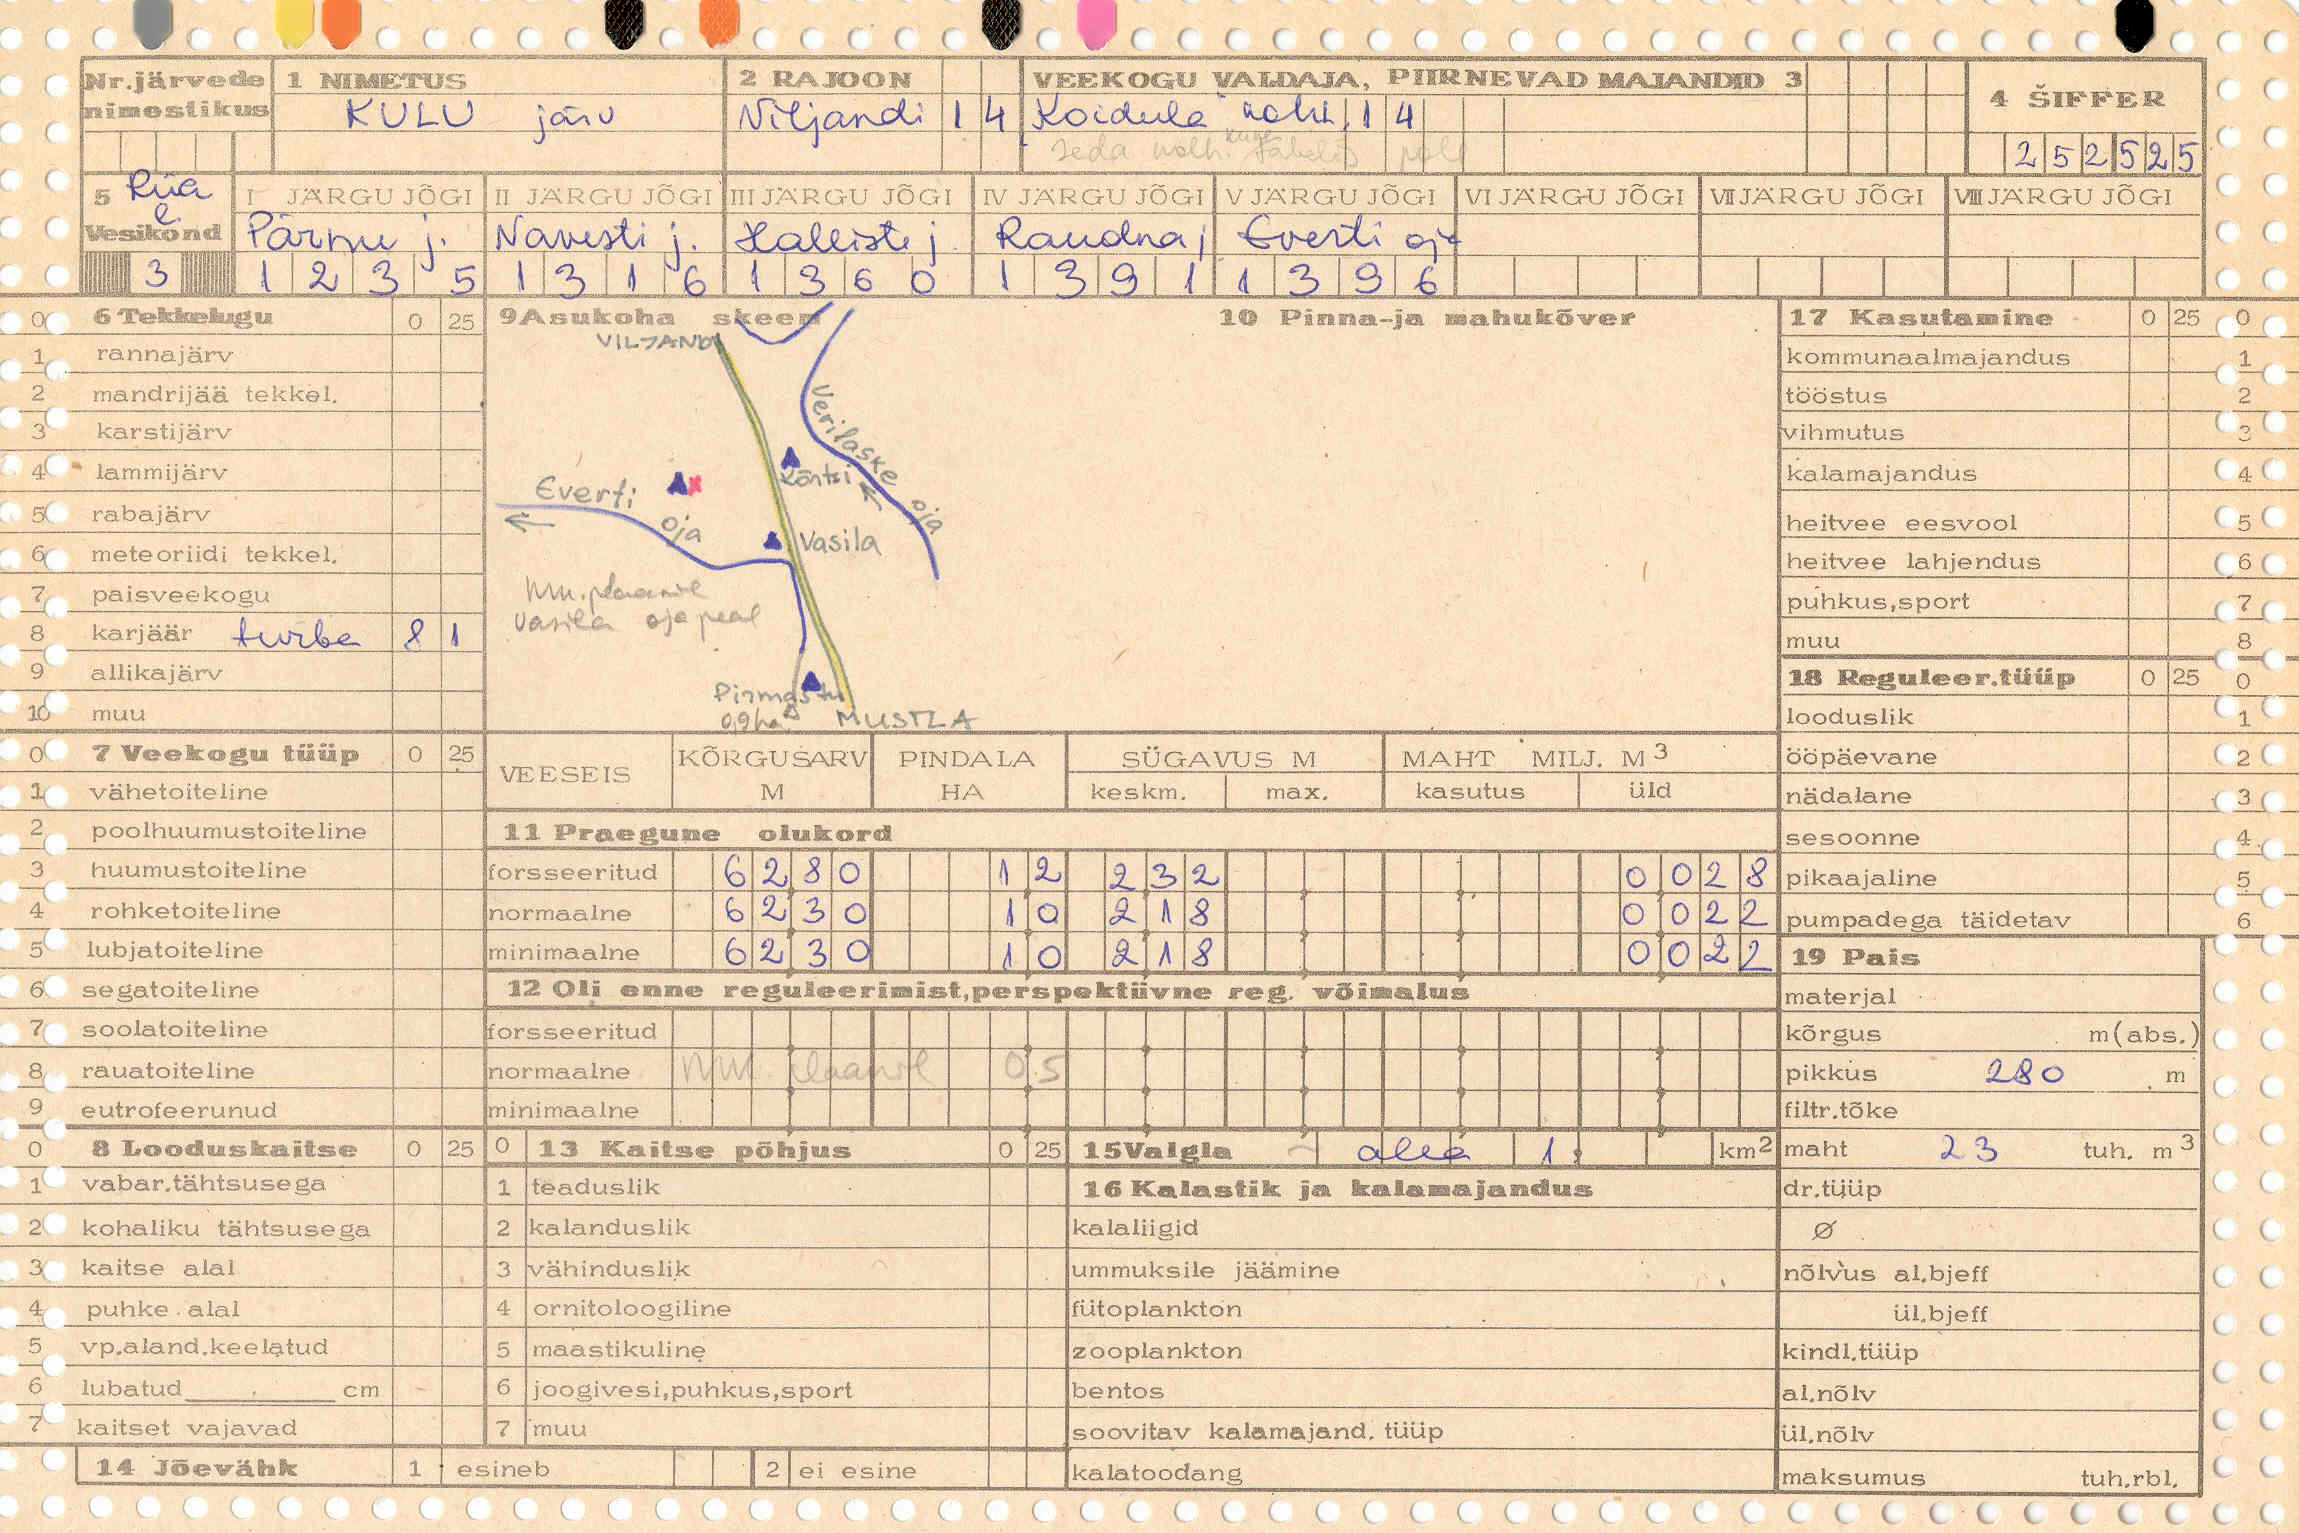 Nr.järvede nimestikus
1 NIMETUS
KULU järv
2 RAJOON
Viljandi 14
VEEKOGU VALDAJA, PIIRNEVAD MAJANDID 3
Koidula sohh. 14
seda kuge tabelis pole
4 ŠIFFER
252525
5 Riia l. Vesikond
3
I JÄRGU JÕGI
Pärnu j.
1235
II JÄRGU JÕGI
Navesti j.
1316
III JÄRGU JÕGI
Halliste j
1360
IV JÄRGU JÕGI
Raudna j
1391
V JÄRGU JÕGI
Everti oja
1396
VI JÄRGU JÕGI
VII JÄRGU JÕGI
VIII JÄRGU JÕGI
0 6 Tekkelugu 0 25
1 rannajärv
2 mandrijää tekkel.
3 karstijärv
4 lammijärv
5 rabajärv
6 meteoriidi tekkel.
7 paisveekogu
8 karjäär turba 8 1
9 allikajärv
10 muu
0 7 Veekogu tüüp 0 25
1 vähetoiteline
2 poolhuumustoiteline
3 huumustoiteline
4 rohketoiteline
5 lubjatoiteline
6 segatoiteline
7 soolatoiteline
8 rauatoiteline
9 eutrofeerunud
0 8 Looduskaitse 0 25
1 vabar.tähtsusega
2 kohaliku tähtsusega
3 kaitse alal
4 puhke alal
5 vp.aland.keelatud
6 lubatud cm
7 kaitset vajavad
14 Jõevähk 1 esineb 2 ei esine
9 Asukoha skeem
VILJANDI
Verilaske oja
Kõrtsi
Everti oja
Vasila
MM. plaanil
Vasila oja peal
Pirmastu
0,9 ha
MUSTLA
10 Pinna-ja mahukõver
VEESEIS
KÕRGUSARV M
PINDALA HA
SÜGAVUS M
keskm. max.
MAHT MILJ. M3
kasutus üld
11 Praegune olukord
forsseeritud 6280 12 232 0028
normaalne 6230 10 218 0022
minimaalne 6230 10 218 0022
12 Oli enne reguleerimist,perspektiivne reg. võimalus
forsseeritud
normaalne MM. plaanil 0.5
minimaalne
0 13 Kaitse põhjus 0 25
1 teaduslik
2 kalanduslik
3 vähinduslik
4 ornitoloogiline
5 maastikuline
6 joogivesi,puhkus,sport
7 muu
15 Valgla ~ alla 1, km2
16 Kalastik ja kalamajandus
kalaliigid
ummuksile jäämine
fütoplankton
zooplankton
bentos
soovitav kalamajand. tüüp
kalatoodang
17 Kasutamine 0 25 0
kommunaalmajandus 1
tööstus 2
vihmutus 3
kalamajandus 4
heitvee eesvool 5
heitvee lahjendus 6
puhkus,sport 7
muu 8
18 Reguleer.tüüp 0 25 0
looduslik 1
ööpäevane 2
nädalane 3
sesoonne 4
pikaajaline 5
pumpadega täidetav 6
19 Pais
materjal
kõrgus m(abs.)
pikkus 280 m
filtr.tõke
maht 23 tuh. m3
dr.tüüp
Ø
nõlvus al.bjeff
ül.bjeff
kindl.tüüp
al.nõlv
ül.nõlv
maksumus tuh.rbl.